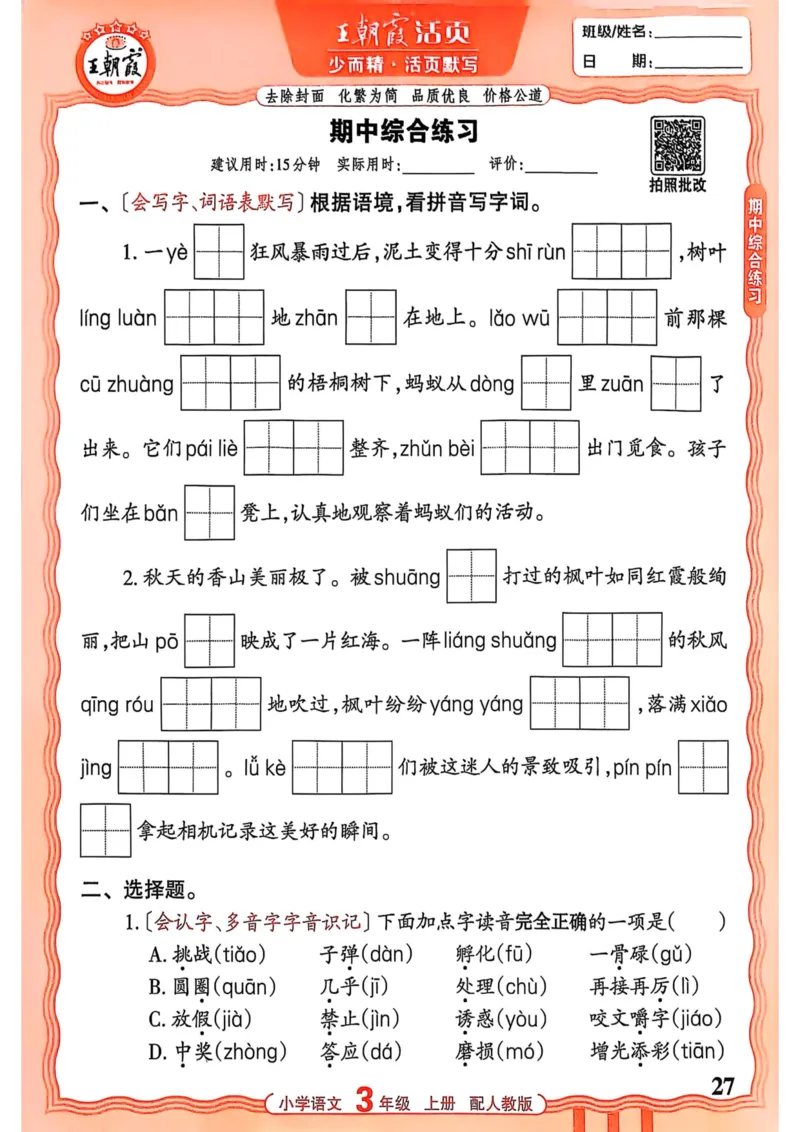 王朝霞
王朝霞活页
少而精·活页默写
班级/姓名:
日 期:
去除封面 化繁为简 品质优良 价格公道
期中综合练习
建议用时:15分钟 实际用时: 评价:
拍照批改
期中综合练习
一、〔会写字、词语表默写〕根据语境,看拼音写字词。
1. 一yè 狂风暴雨过后,泥土变得十分shī rùn ,树叶
líng luàn 地zhān 在地上。lǎo wū 前那棵
cū zhuàng 的梧桐树下,蚂蚁从dòng 里zuān 了
出来。它们pái liè 整齐,zhǔn bèi 出门觅食。孩子
们坐在bǎn 凳上,认真地观察着蚂蚁们的活动。
2. 秋天的香山美丽极了。被shuāng 打过的枫叶如同红霞般绚
丽,把山pō 映成了一片红海。一阵liáng shuǎng 的秋风
qīng róu 地吹过,枫叶纷纷yáng yáng ,落满xiǎo
jìng 。lǚ kè 们被这迷人的景致吸引,pín pín
拿起相机记录这美好的瞬间。
二、选择题。
1.〔会认字、多音字字音识记〕下面加点字读音完全正确的一项是( )
A. 挑战(tiǎo) 子弹(dàn) 孵化(fū) 一骨碌(gǔ)
B. 圆圈(quān) 几乎(jī) 处理(chù) 再接再厉(lì)
C. 放假(jià) 禁止(jìn) 诱惑(yòu) 咬文嚼字(jiáo)
D. 中奖(zhòng) 答应(dá) 磨损(mó) 增光添彩(tiān)
27
小学语文 3年级 上册 配人教版